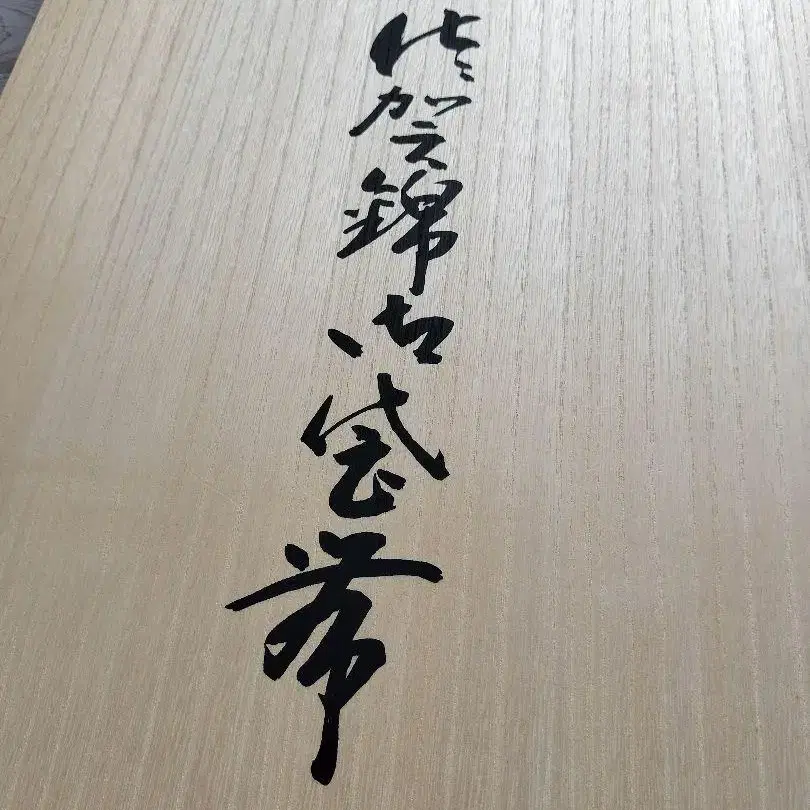 佐賀錦御袋帯